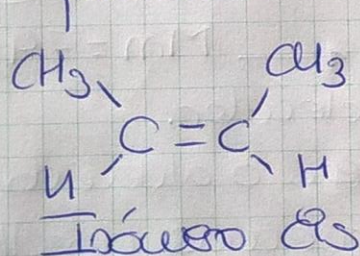 CH3 CH3
C = C
H H
Isómero Cis